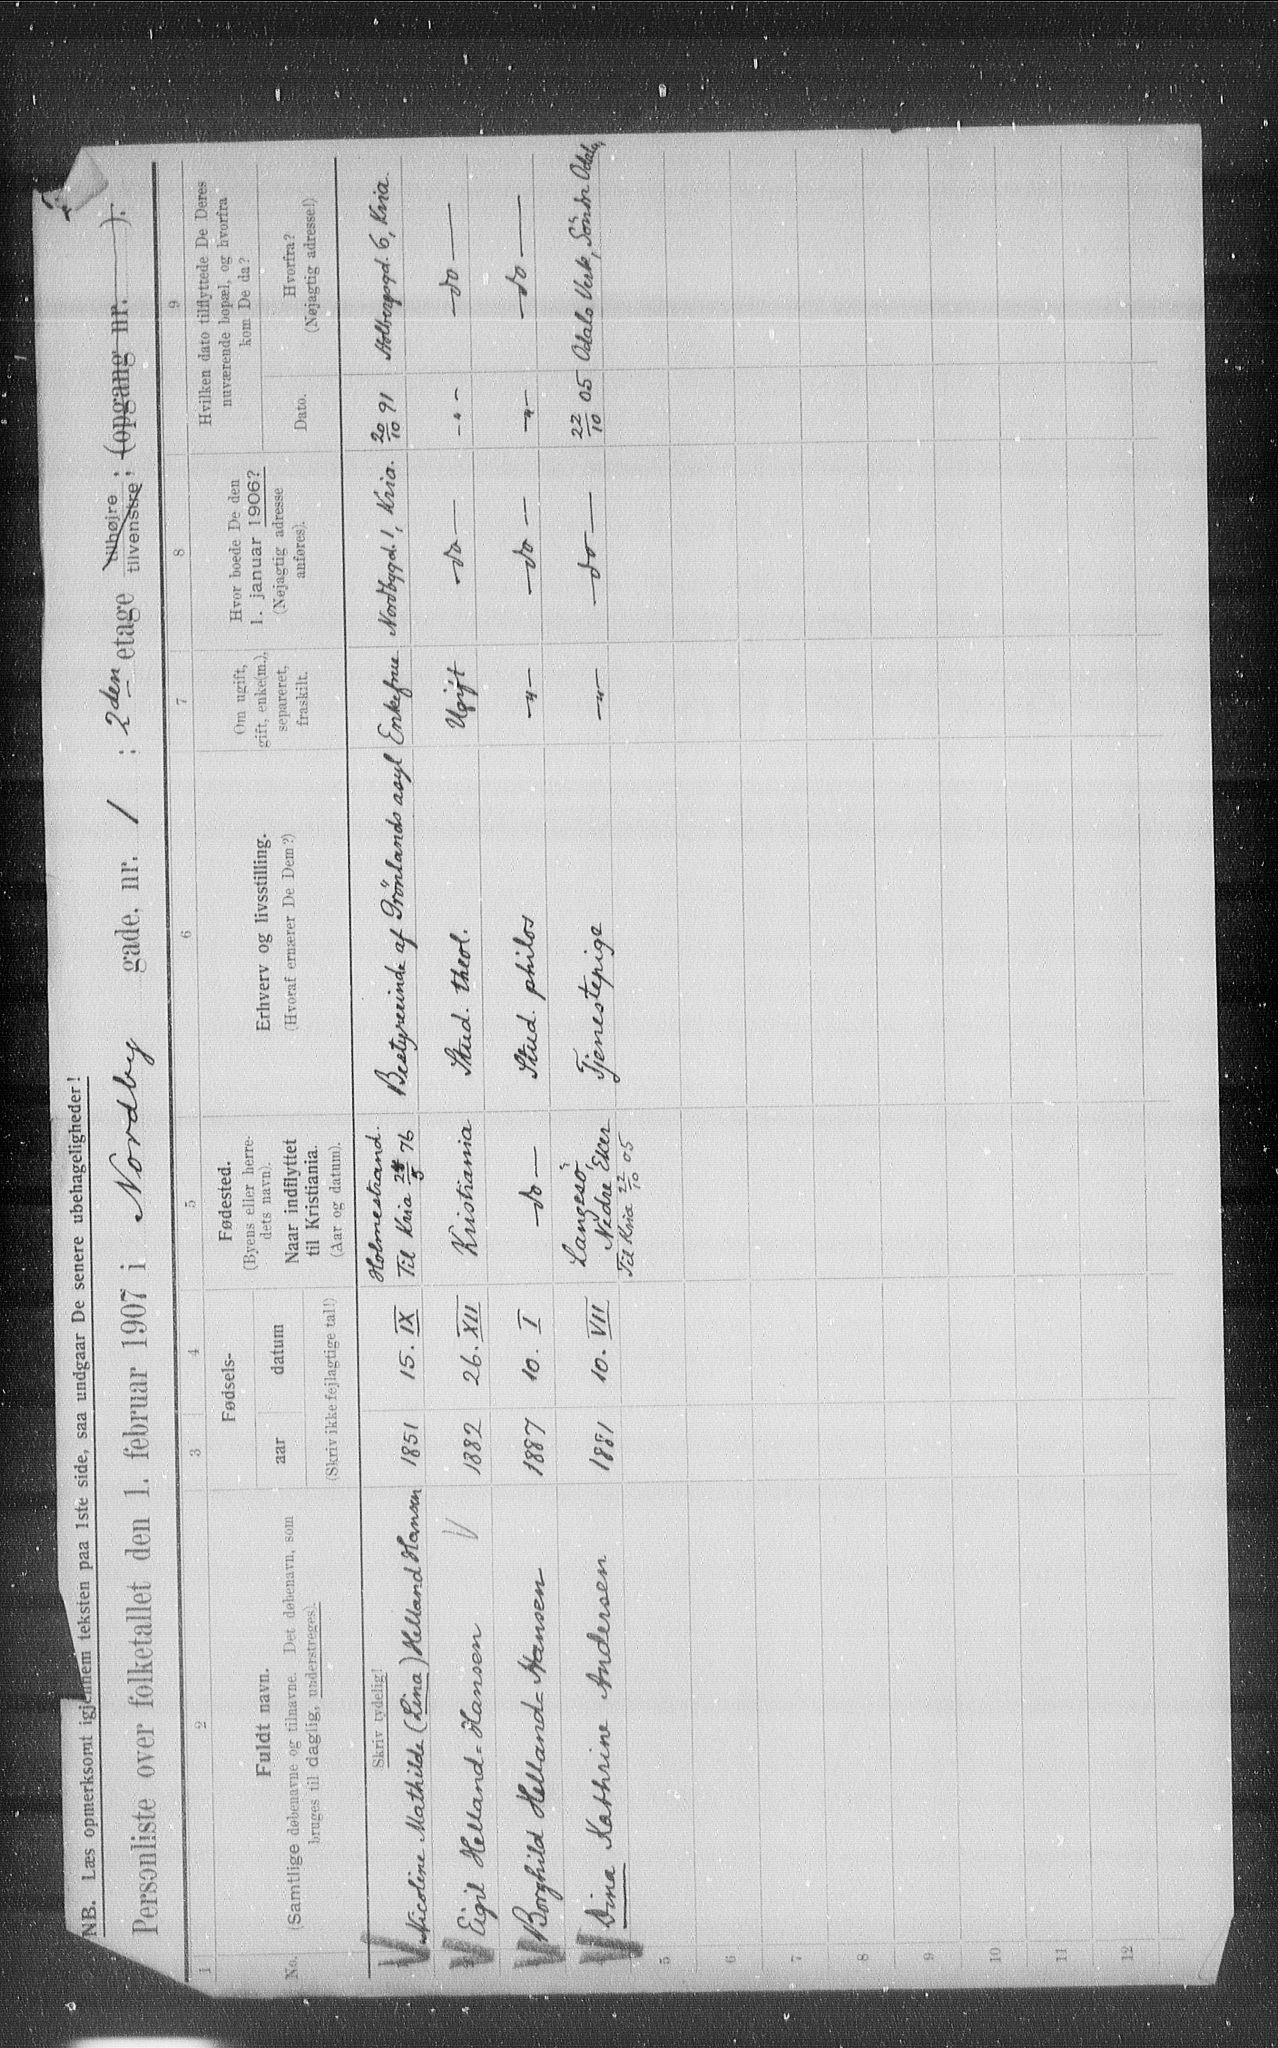 NB. Læs opmerksomt igjennem teksten paa 1ste side, saa undgaar De senere ubehageligheder!
Personliste over folketallet den 1. februar 1907 i Nordby gade, nr. 1 : 2den etage tilhøjre tilvenstre ; (opgang nr. ).
1 2 3 4 5 6 7 8 9
No.
Fuldt navn.
(Samtlige døbenavne og tilnavne. Det døbenavn, som
bruges til daglig, understreges).
Fødsels-
aar datum
(Skriv ikke fejlagtige tal!)
Fødested.
(Byens eller herre-
dets navn).
Naar indflyttet
til Kristiania.
(Aar og datum).
Erhverv og livsstilling.
(Hvoraf ernærer De Dem?)
Om ugift,
gift, enke(m.),
separeret,
fraskilt.
Hvor boede De den
1. januar 1906?
(Nøjagtig adresse
anføres).
Hvilken dato tilflyttede De Deres
nuværende bopæl, og hvorfra
kom De da?
Dato.
Hvorfra?
(Nøjagtig adresse!)
Skriv tydelig!
Nicoline Mathilde (Lina) Helland Hansen 1851 15. IX Holmestrand. Til Kria 24/5 76 Bestyrerinde af Grönlands asyl Enkefrue Nordbygd. 1, Kria. 20/10 91 Holbergsgd. 6, Kria.
Eigil Helland-Hansen 1882 26. XII Kristiania Stud. theol. Ugift -do- -"- -do-
Borghild Helland-Hansen 1887 10. I -do- Stud. philos -"- -do- -"- -do-
Dina Kathrine Andersen 1881 10. VII Langesö, Nedre Eker Til Kria 22/10 05 Tjenestepige -"- -do- 22/10 05 Odals Verk, Söndre Odalen
5
6
7
8
9
10
11
12